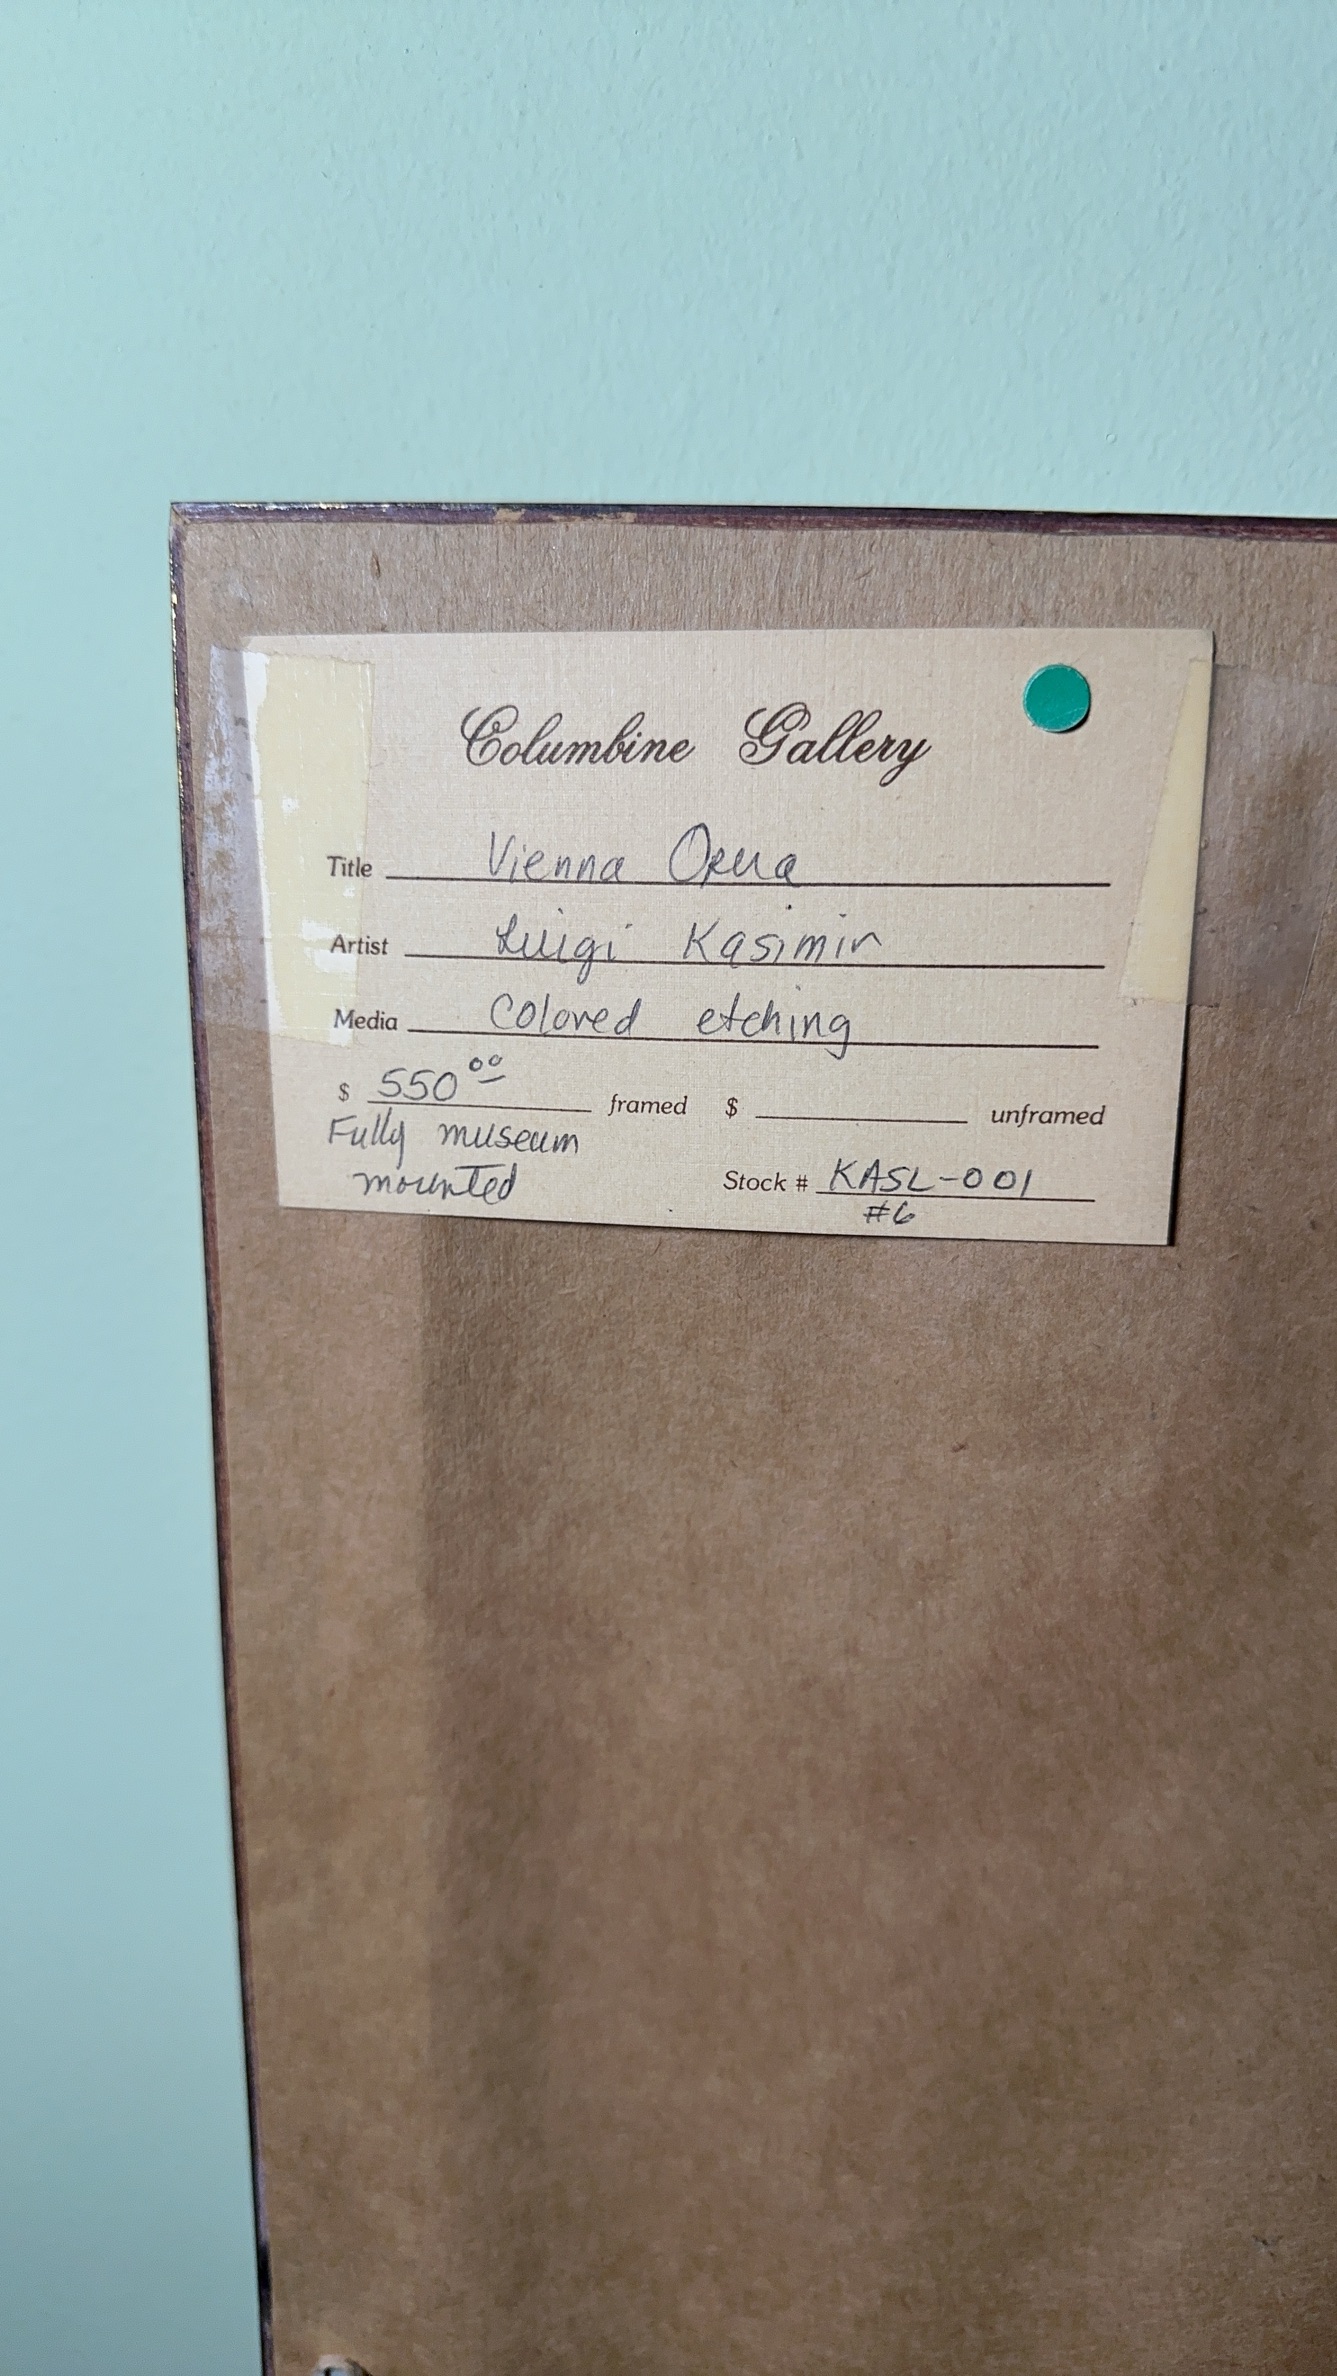 Columbine Gallery
Title Vienna Opera
Artist Luigi Kasimir
Media Colored etching
$ 550.00 framed $ unframed
Fully museum
mounted
Stock # KASL-001
#6